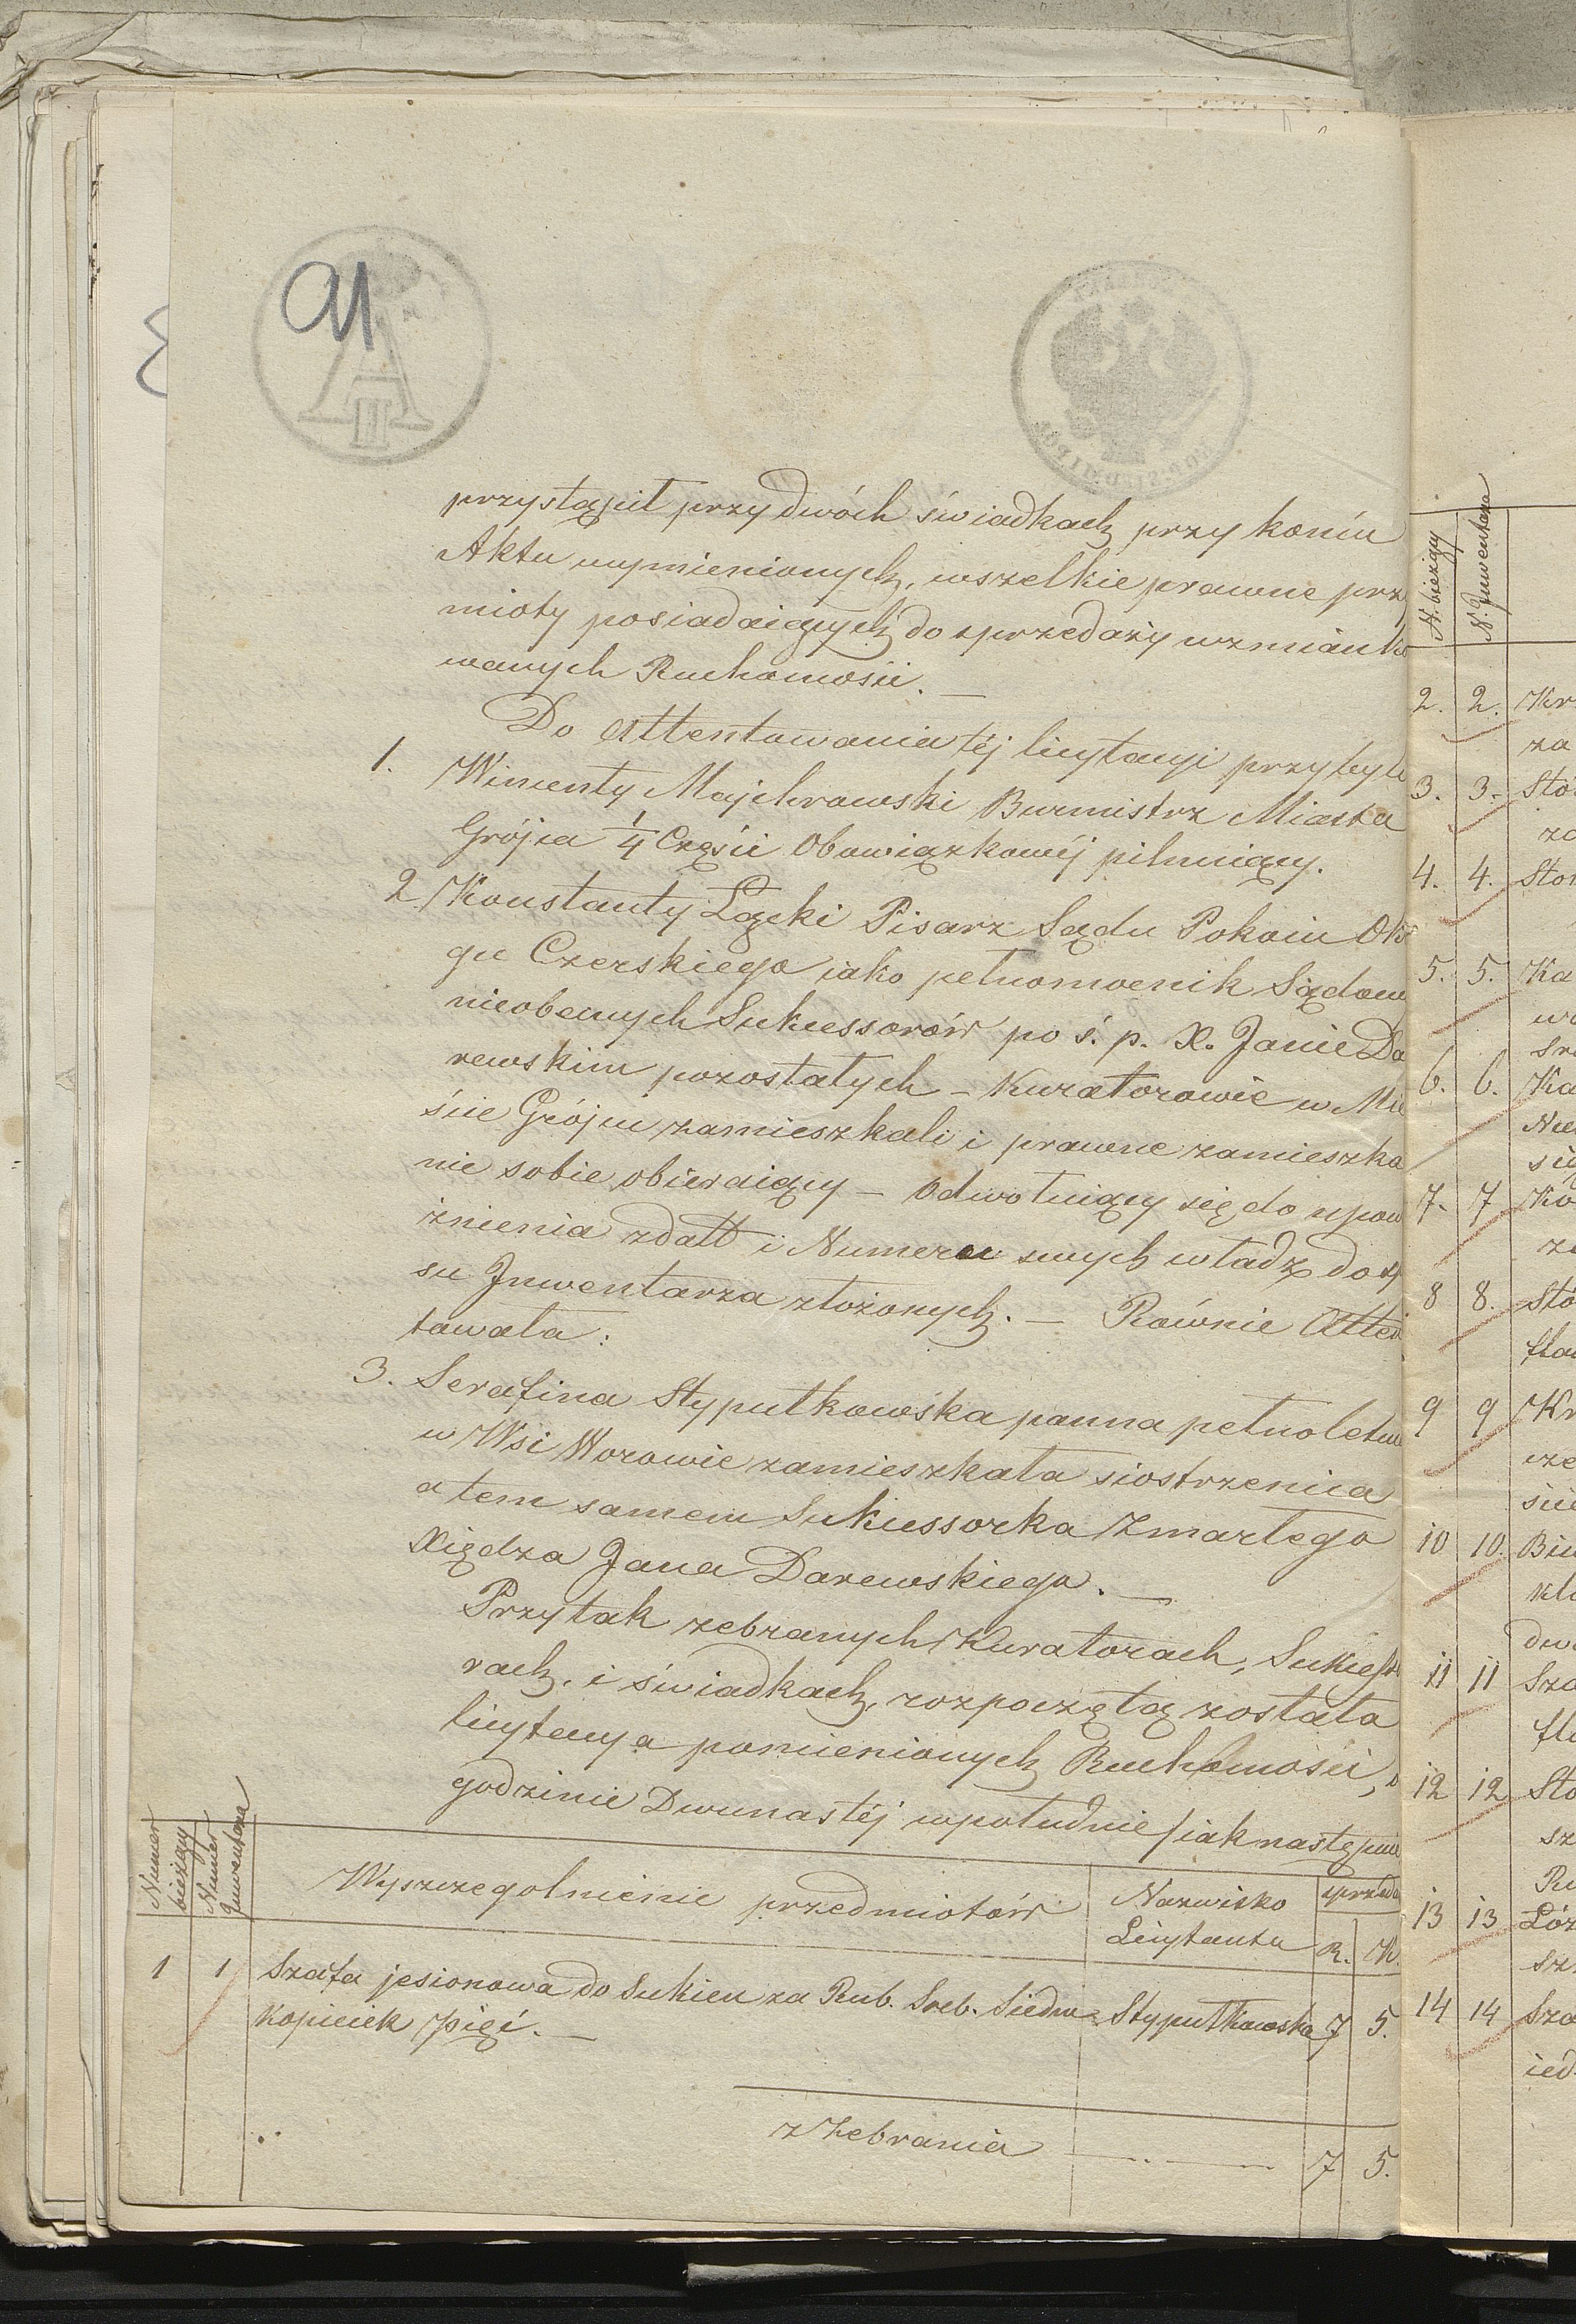 91
przystąpił przy dwóch świadkach przy końcu
Aktu wymienionych, wszelkie prawne prz
mioty posiadaiących do sprzedaży wzmianko
wanych Ruchomości. —
Do Attentowania téj licytacyi przybyli
1. Wincenty Majchrowski Burmistrz Miasta
Grójca 1/4 Części Obowiązkowéj pilnuiący.
2 Konstanty Łącki Pisarz Sądu Pokoiu Okr
gu Czerskiego iako pełnomocnik Sądow
nieobecnych Sukcessorów po ś. p. X. Janie Da
rewskim pozostałych – Kuratorowie w Mie
ście Grójcu zamieszkali i prawne zamieszka
nie sobie obieraiący – Odwołuiący się do upow
żnienia z datt i Numeru swych władz do sp
su Inwentarza złożonych. — Równie Atten
towała:
3. Serafina Stypułkowska panna pełnoletnia
w Wsi Worowie zamieszkała siostrzenica
a tem samem Sukcessorka Zmarłego
Xiędza Jana Darewskiego. —
Przy tak zebranych Kuratorach, Sukcesso
rach, i świadkach, rozpoczętą została
licytacya pomienionych Ruchomości, o
godzinie Dwunastéj w południe / iak następuie
Numer bieżący
Numer Inwentarza
Wyszczegolnienie przedmiotów
Nazwisko Licytanta
sprzeda
R. K.
1 1 Szafa jesionowa do Sukien za Rub. Sreb. Siedm Stypułkowska 7 5.
Kopieiek pięć. —
z Zebrania 7 5.
N. bieżący
N. Inwentarza
2. 2. Kr
za
3. 3. Stó
za
4. 4. Sto
5. 5. Ka
6. 6. Ka
się
7. 7 Ko
8 8. Stó
9 9 Kr
10 10. Biu
11 11 Sza
12 12 Sto
sz
13 13 Łóż
sz
14 14 Sza
ied